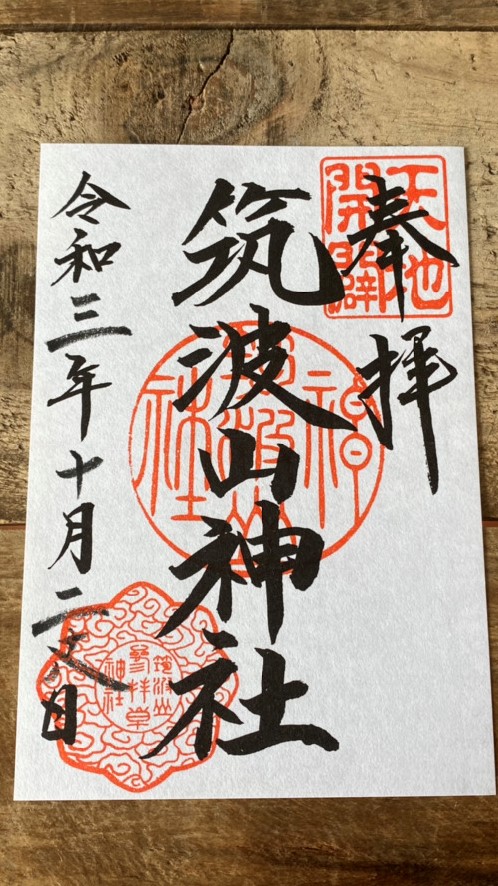 奉拝
天地
開闢
筑波山神社
筑波山
神社
令和三年十月二日
筑波山
神社
參拝章